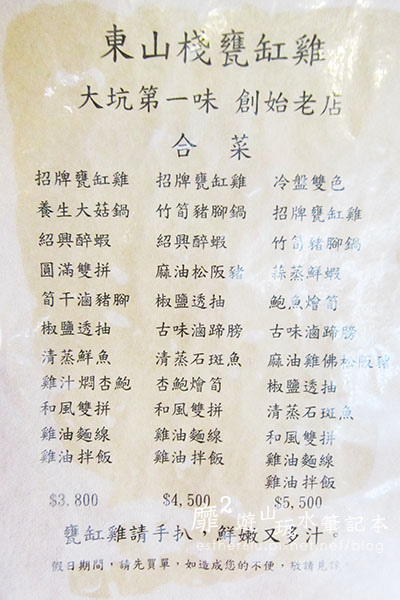 東山棧甕缸雞
大坑第一味 創始老店
合菜
招牌甕缸雞
養生大菇鍋
紹興醉蝦
圓滿雙拼
筍干滷豬腳
椒鹽透抽
清蒸鮮魚
雞汁燜杏鮑
和風雙拼
雞油麵線
雞油拌飯
$3.800
招牌甕缸雞
竹筍豬腳鍋
紹興醉蝦
麻油松阪豬
椒鹽透抽
古味滷蹄膀
清蒸石斑魚
杏鮑燴筍
和風雙拼
雞油麵線
雞油拌飯
$4,500
冷盤雙色
招牌甕缸雞
竹筍豬腳鍋
蒜蒸鮮蝦
鮑魚燴筍
古味滷蹄膀
麻油雞佛松阪豬
椒鹽透抽
清蒸石斑魚
和風雙拼
雞油麵線
雞油拌飯
$5,500
靡²遊山玩水筆記本
甕缸雞請手扒，鮮嫩又多汁。
假日期間，請先買單，如造成您的不便，敬請見諒